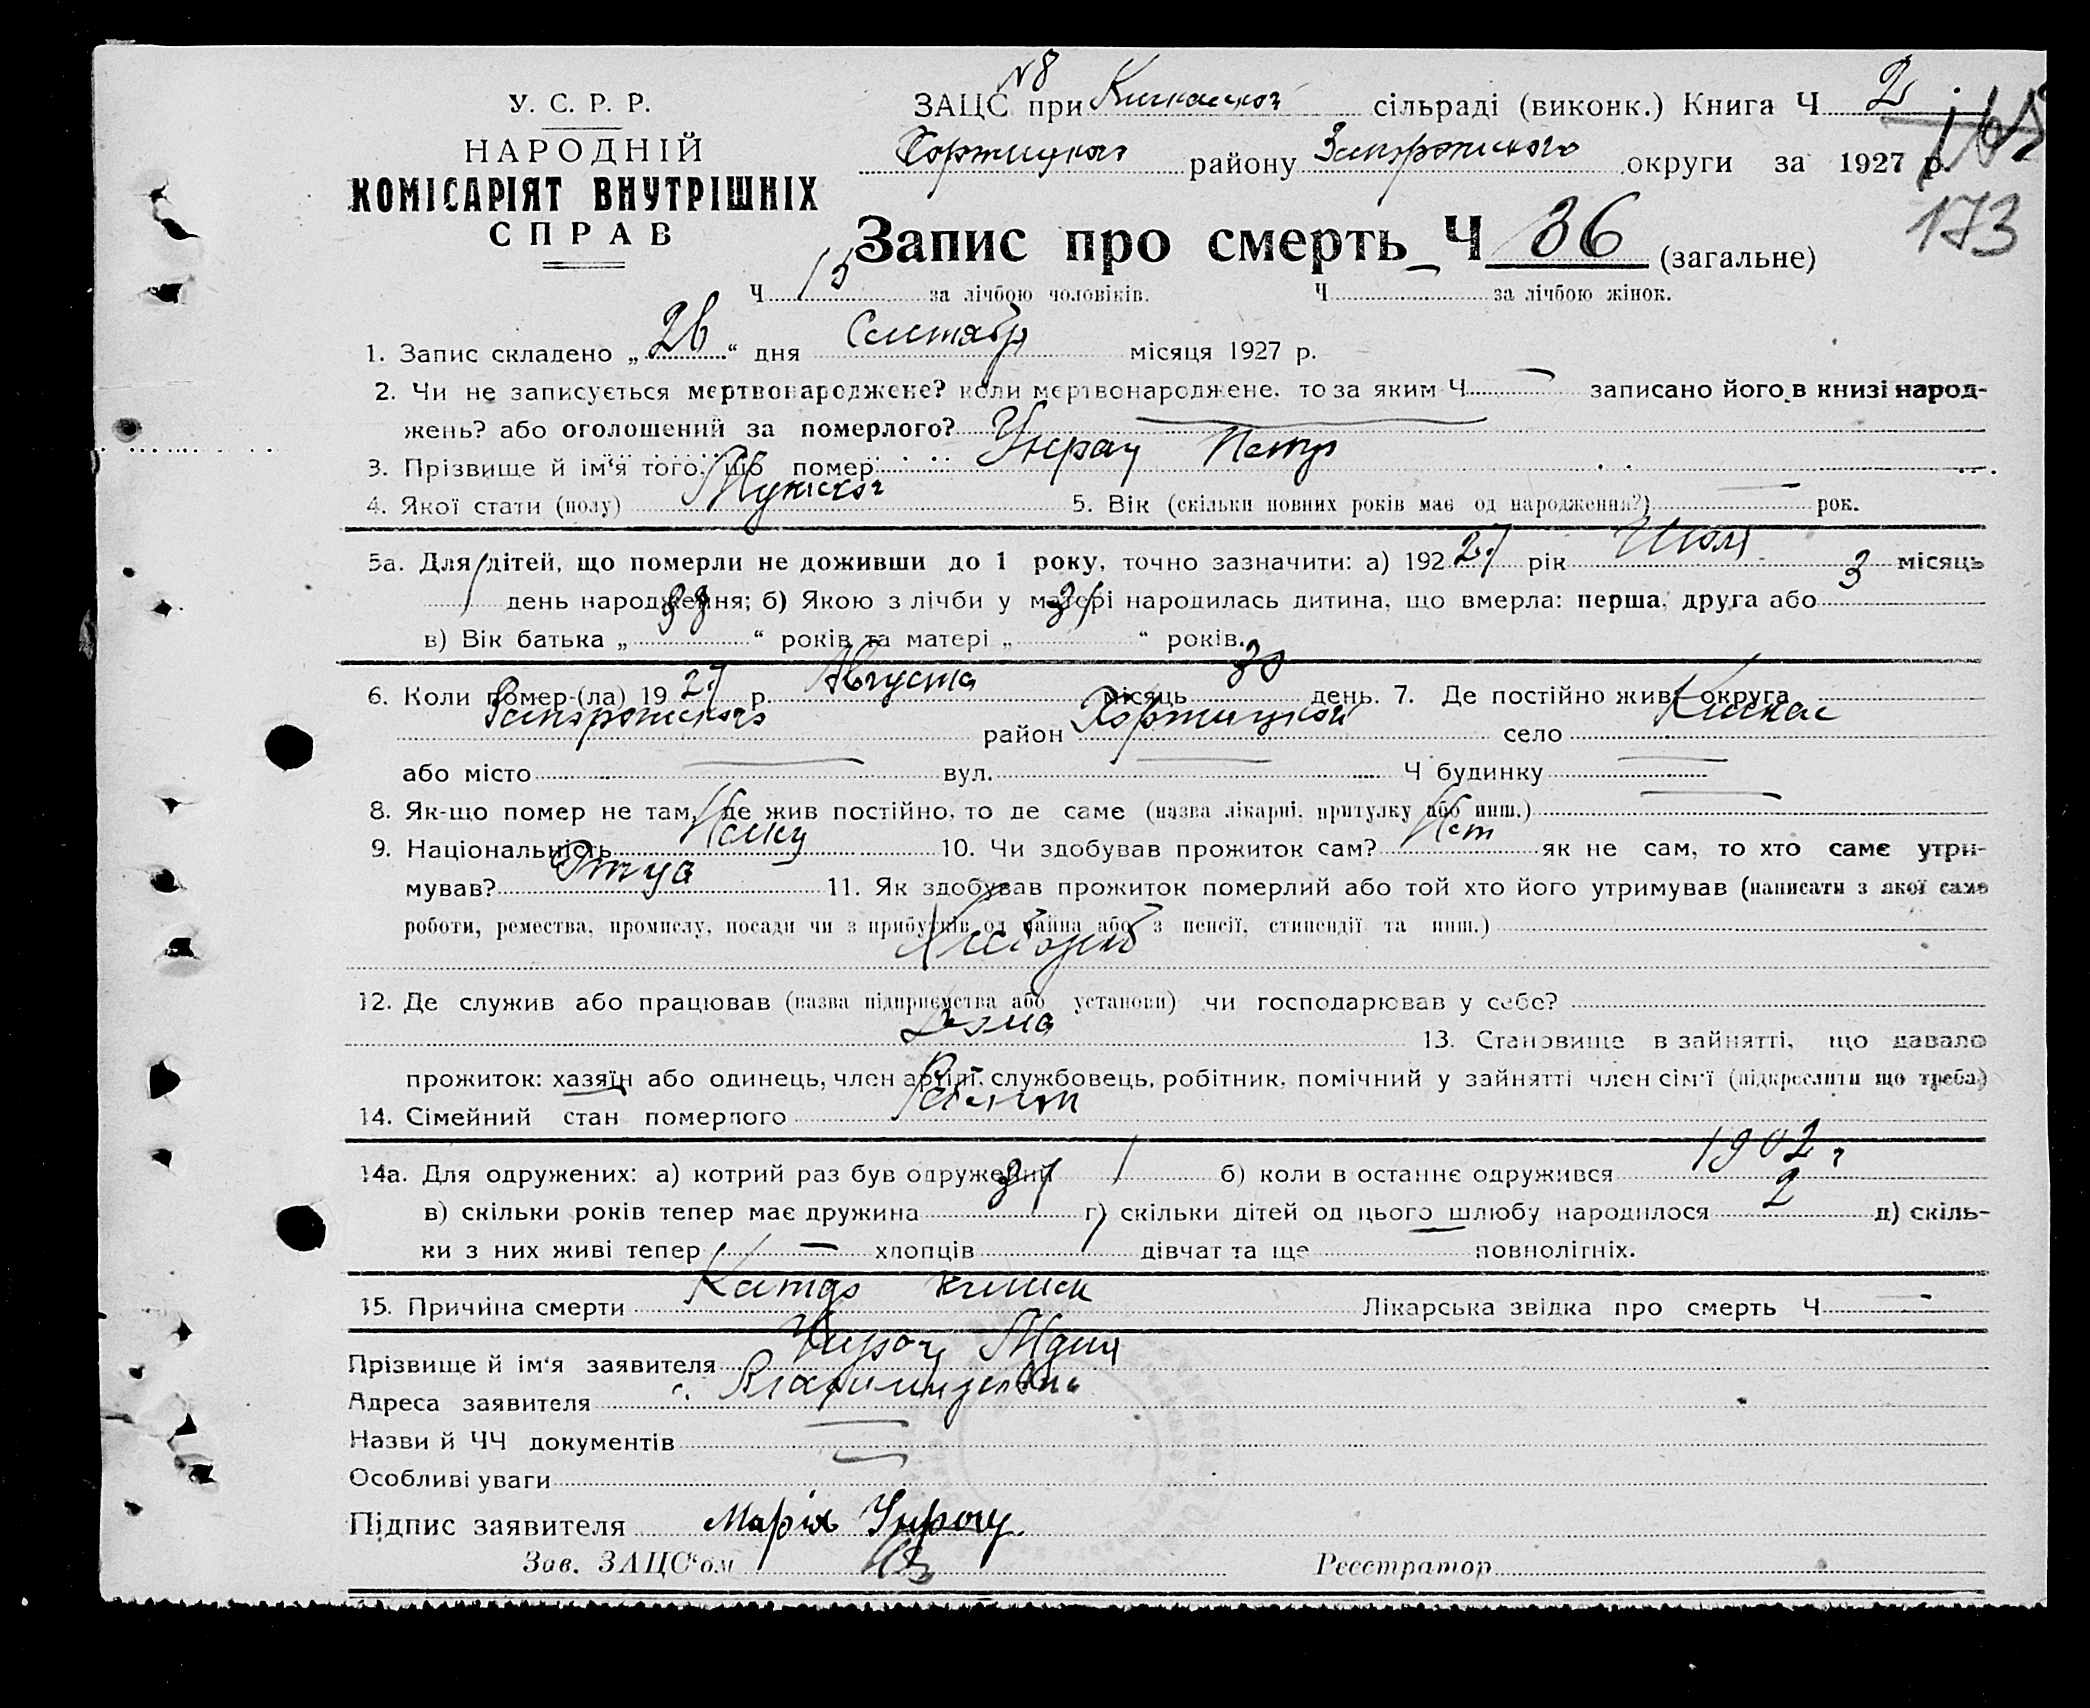 У. С. Р. Р.
НАРОДНІЙ
КОМІСАРІЯТ ВНУТРІШНІХ
СПРАВ
№8
ЗАЦС при Кичкаской сільраді (виконк.) Книга Ч 2
Хортицкого району Запорожского округи за 1927 р.
173
Запис про смерть Ч 36 (загальне)
Ч 15 за лічбою чоловіків. Ч за лічбою жінок.
1. Запис складено „26“ дня Сентябр місяця 1927 р.
2. Чи не записується мертвонароджене? коли мертвонароджене, то за яким Ч — записано його в книзі народ-
жень? або оголошений за померлого? —
3. Прізвище й ім‘я того, що помер Унрау Петр
4. Якої стати (полу) Мужской 5. Вік (скільки повних років має од народження?) — рок.
5а. Для дітей, що померли не доживши до 1 року, точно зазначити: а) 192 27 рік Июля місяць
1 день народження; б) Якою з лічби у матері народилась дитина, що вмерла: перша, друга або 3
в) Вік батька „38“ років та матері „31“ років.
6. Коли помер-(ла) 19 27 р. Августа місяць 30 день. 7. Де постійно жив: округа
Запорожского район Хортицкой село Кичкас
або місто — вул. — Ч будинку —
8. Як-що помер не там, де жив постійно, то де саме (назва лікарні, притулку або инш.) —
9. Національність Немец 10. Чи здобував прожиток сам? Нет як не сам, то хто саме утри-
мував? Отца 11. Як здобував прожиток померлий або той хто його утримував (написати з якої саме
роботи, ремества, промислу, посади чи з прибутків од майна або з пенсії, стипендії та инш.)
Хлебороб
12. Де служив або працював (назва підприємства або установи) чи господарював у себе?
Дома 13. Становище в зайнятті, що давало
прожиток: хазяїн або одинець, член артілі, службовець, робітник, помічний у зайнятті член сім‘ї (підкреслити що треба)
14. Сімейний стан померлого
14а. Для одружених: а) котрий раз був одружений 1 б) коли в останнє одружився
в) скільки років тепер має дружина 31 г) скільки дітей од цього шлюбу народилося 2 д) скіль-
ки з них живі тепер — хлопців 1 дівчат та ще — повнолітніх.
15. Причина смерти Катар кишек Лікарська звідка про смерть Ч —
Прізвище й ім‘я заявителя Унрау
Адреса заявителя с.
Назви й ЧЧ документів —
Особливі уваги —
Підпис заявителя Марія Унрау.
Зав. ЗАЦС‘ом Реєстратор